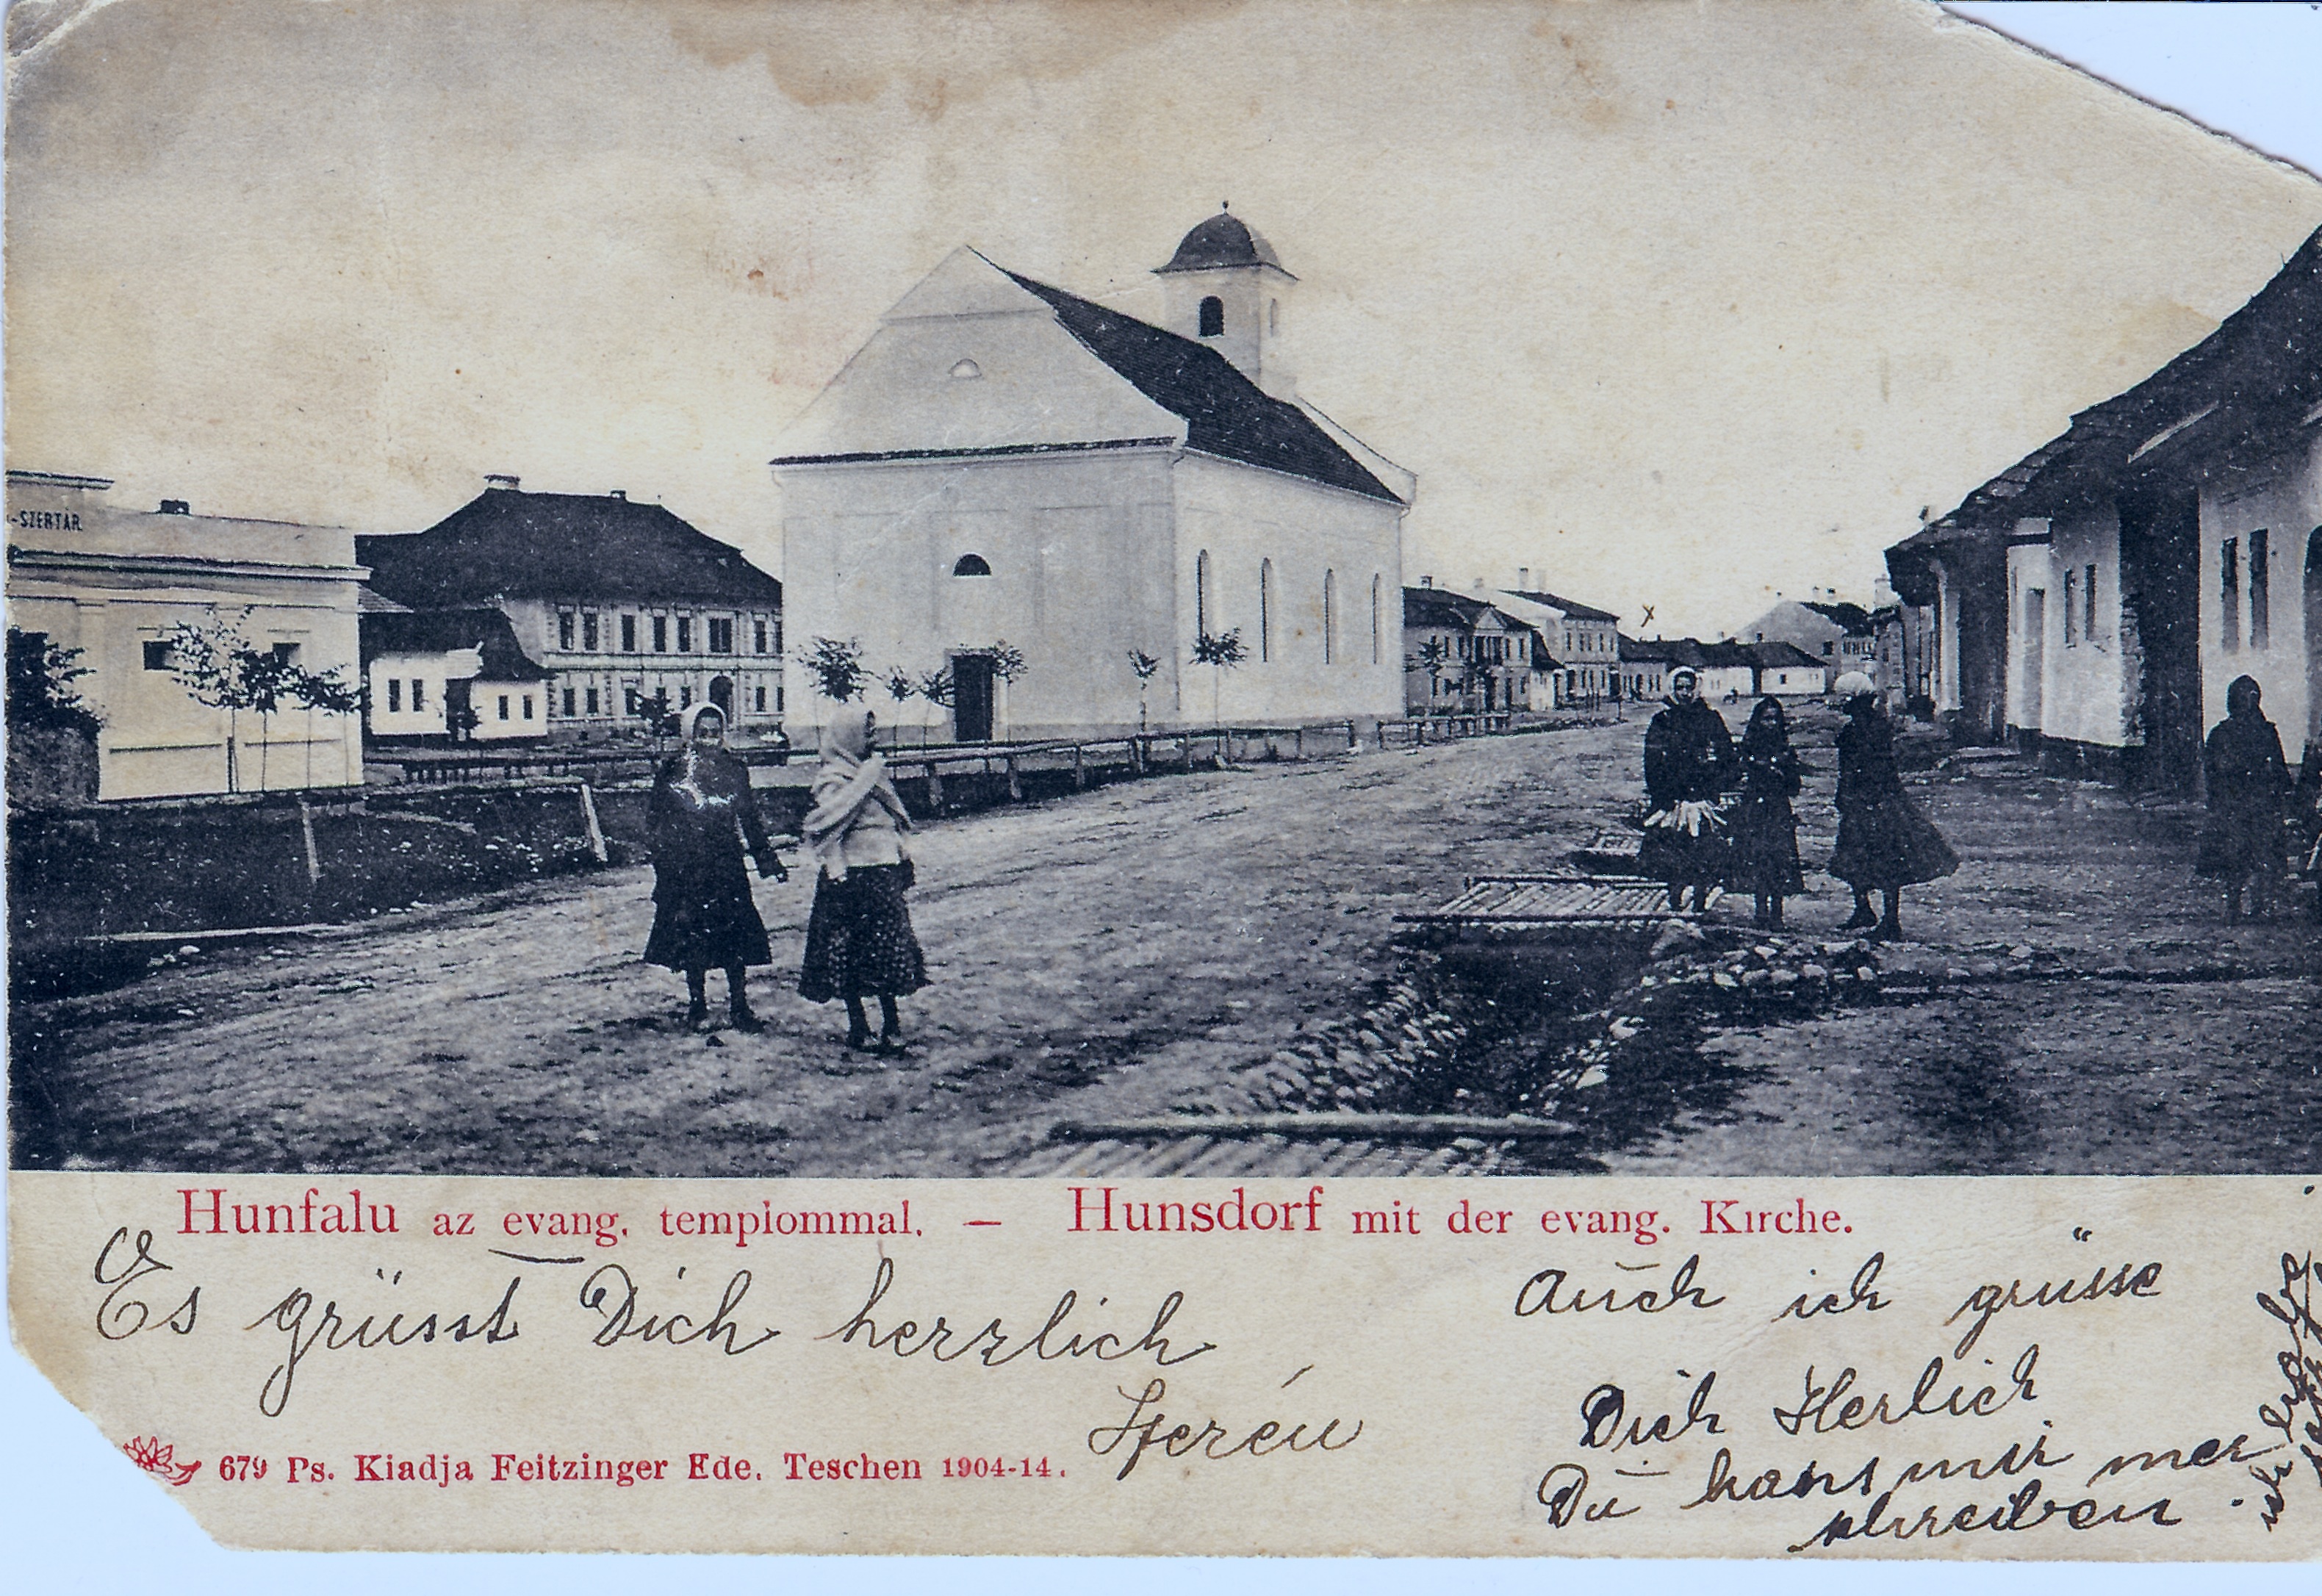 -SZERTÁR.
Hunfalu az evang. templommal. — Hunsdorf mit der evang. Kirche.
Es grüsst Dich herzlich
Auch ich grüsse
Dich Herlich
Du kans mir mer
schreiben
679 Ps. Kiadja Feitzinger Ede. Teschen 1904-14.